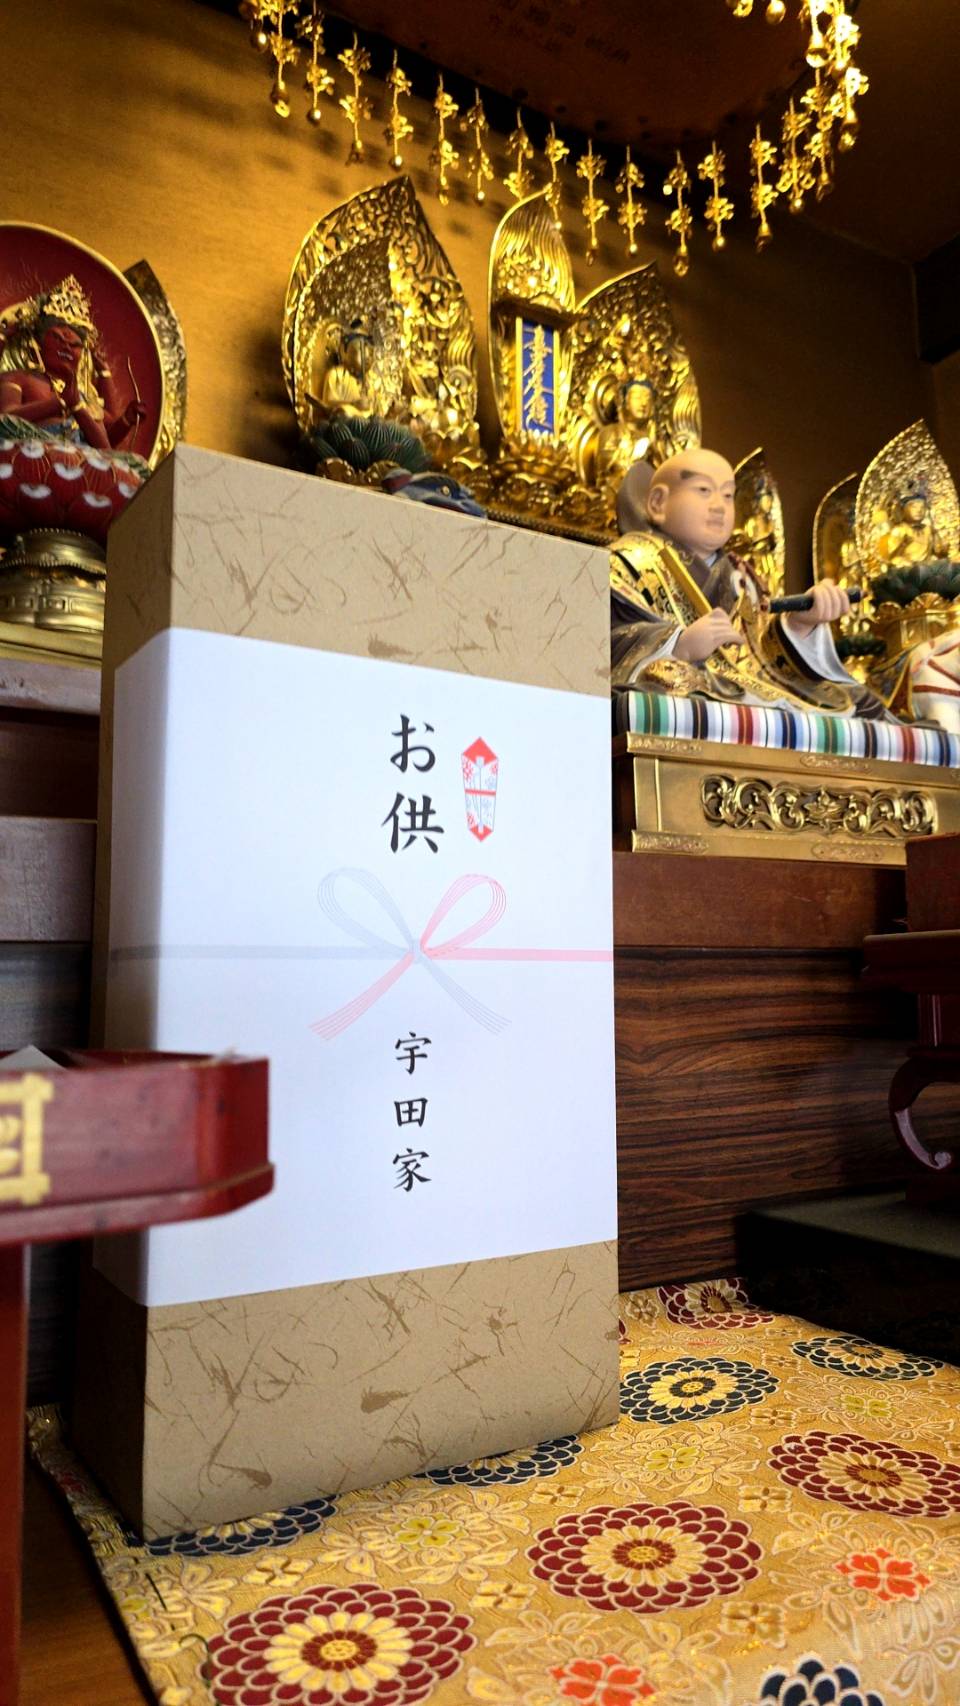 お供
宇田家